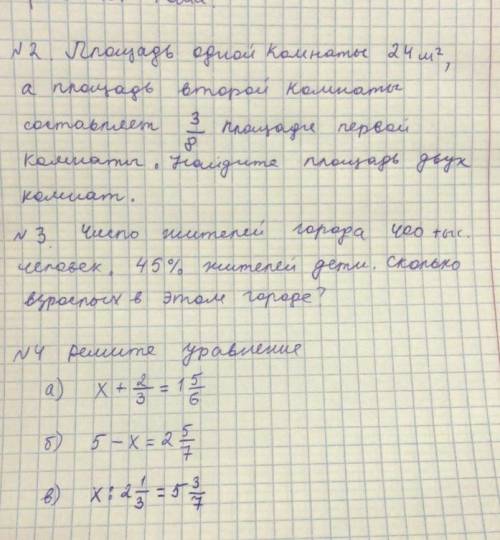 №2. Площадь одной комнаты 24 м²,
а площадь второй комнаты
составляет 3/8 площади первой
комнаты. Найдите площадь двух
комнат.
№3. Число жителей города 400 тыс.
человек. 45% жителей дети. Сколько
взрослых в этом городе?
№4 Решите уравнение
а) x + 2/3 = 1 5/6
б) 5 - x = 2 5/7
в) x : 2 1/3 = 5 3/7